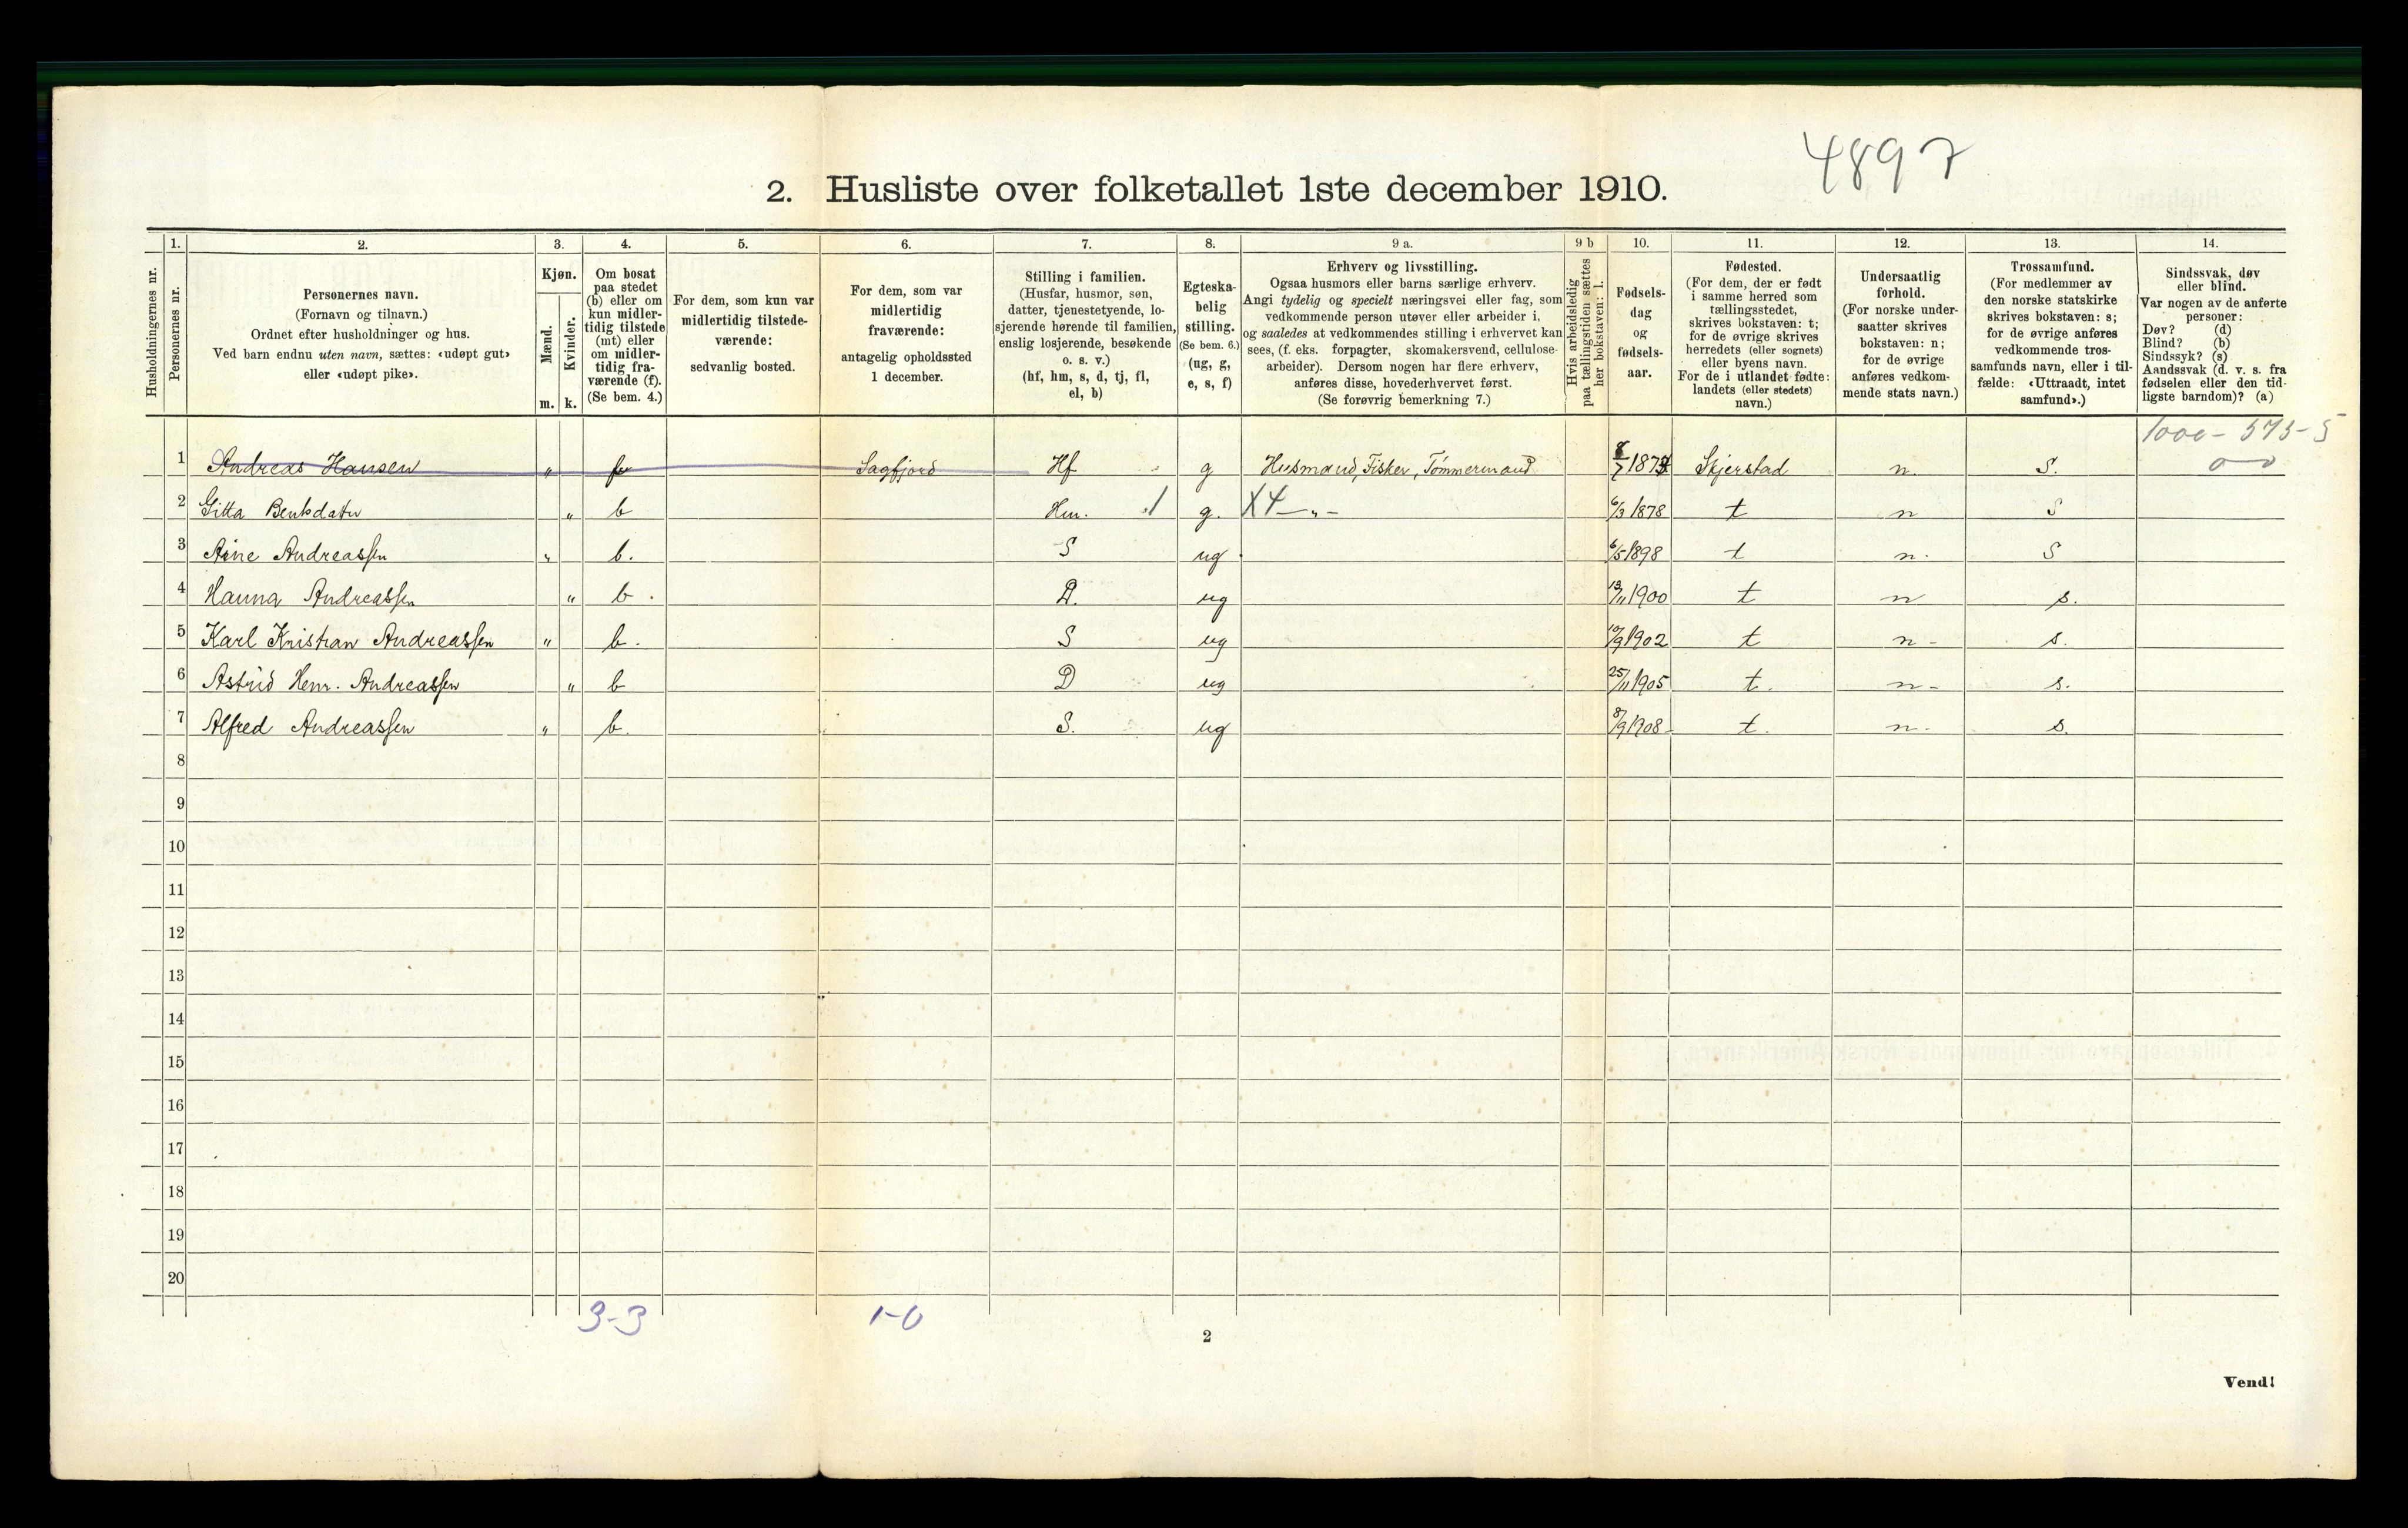 4897
2. Husliste over folketallet 1ste december 1910.
Husholdningernes nr.
1.
Personernes nr.
2.
Personernes navn.
(Fornavn og tilnavn.)
Ordnet efter husholdninger og hus.
Ved barn endnu uten navn, sættes: «udøpt gut»
eller «udøpt pike».
3.
Kjøn.
Mænd.
Kvinder.
m. k.
4.
Om bosat
paa stedet
(b) eller om
kun midler-
tidig tilstede
(mt) eller
om midler-
tidig fra-
værende (f).
(Se bem. 4.)
5.
For dem, som kun var
midlertidig tilstede-
værende:
sedvanlig bosted.
6.
For dem, som var
midlertidig
fraværende:
antagelig opholdssted
1 december.
7.
Stilling i familien.
(Husfar, husmor, søn,
datter, tjenestetyende, lo-
sjerende hørende til familien,
enslig losjerende, besøkende
o. s. v.)
(hf, hm, s, d, tj, fl,
el, b)
8.
Egteska-
belig
stilling.
(Se bem. 6.)
(ug, g,
e, s, f)
9 a.
Erhverv og livsstilling.
Ogsaa husmors eller barns særlige erhverv.
Angi tydelig og specielt næringsvei eller fag, som
vedkommende person utøver eller arbeider i,
og saaledes at vedkommendes stilling i erhvervet kan
sees, (f. eks. forpagter, skomakersvend, cellulose-
arbeider). Dersom nogen har flere erhverv,
anføres disse, hovederhvervet først.
(Se forøvrig bemerkning 7.)
9 b
Hvis arbeidsledig
paa tællingstiden sættes
her bokstaven: l.
10.
Fødsels-
dag
og
fødsels-
aar.
11.
Fødested.
(For dem, der er født
i samme herred som
tællingsstedet,
skrives bokstaven: t;
for de øvrige skrives
herredets (eller sognets)
eller byens navn.
For de i utlandet fødte:
landets (eller stedets)
navn.)
12.
Undersaatlig
forhold.
(For norske under-
saatter skrives
bokstaven: n;
for de øvrige
anføres vedkom-
mende stats navn.)
13.
Trossamfund.
(For medlemmer av
den norske statskirke
skrives bokstaven: s;
for de øvrige anføres
vedkommende tros-
samfunds navn, eller i til-
fælde: «Uttraadt, intet
samfund».)
14.
Sindssvak, døv
eller blind.
Var nogen av de anførte
personer:
Døv? (d)
Blind? (b)
Sindssyk? (s)
Aandssvak (d. v. s. fra
fødselen eller den tid-
ligste barndom)? (a)
1000 - 575 - 5
0 - 0
1 Andreas Hansen " f Sagfjord Hf g Husmand, Fisker, Tømmermand Skjerstad n. S.
2 Gitta Bentsdatr " b Hm. 1 g. X4 - " - 6/3 1878 t n S
3 Arne Andreassen " b. S ug 6/5 1898 t n. S
4 Hanna Andreassen " b. D. ug 13/11 1900 t n s.
5 Karl Kristian Andreassen " b. S ug 10/9 1902 t n - s.
6 Astrid Henr. Andreassen " b D ug 25/11 1905 t. n - s.
7 Alfred Andreassen " b. S. ug 8/9 1908 t. n. s.
8
9
10
11
12
13
14
15
16
17
18
19
20
3-3
1-0
2
Vend!